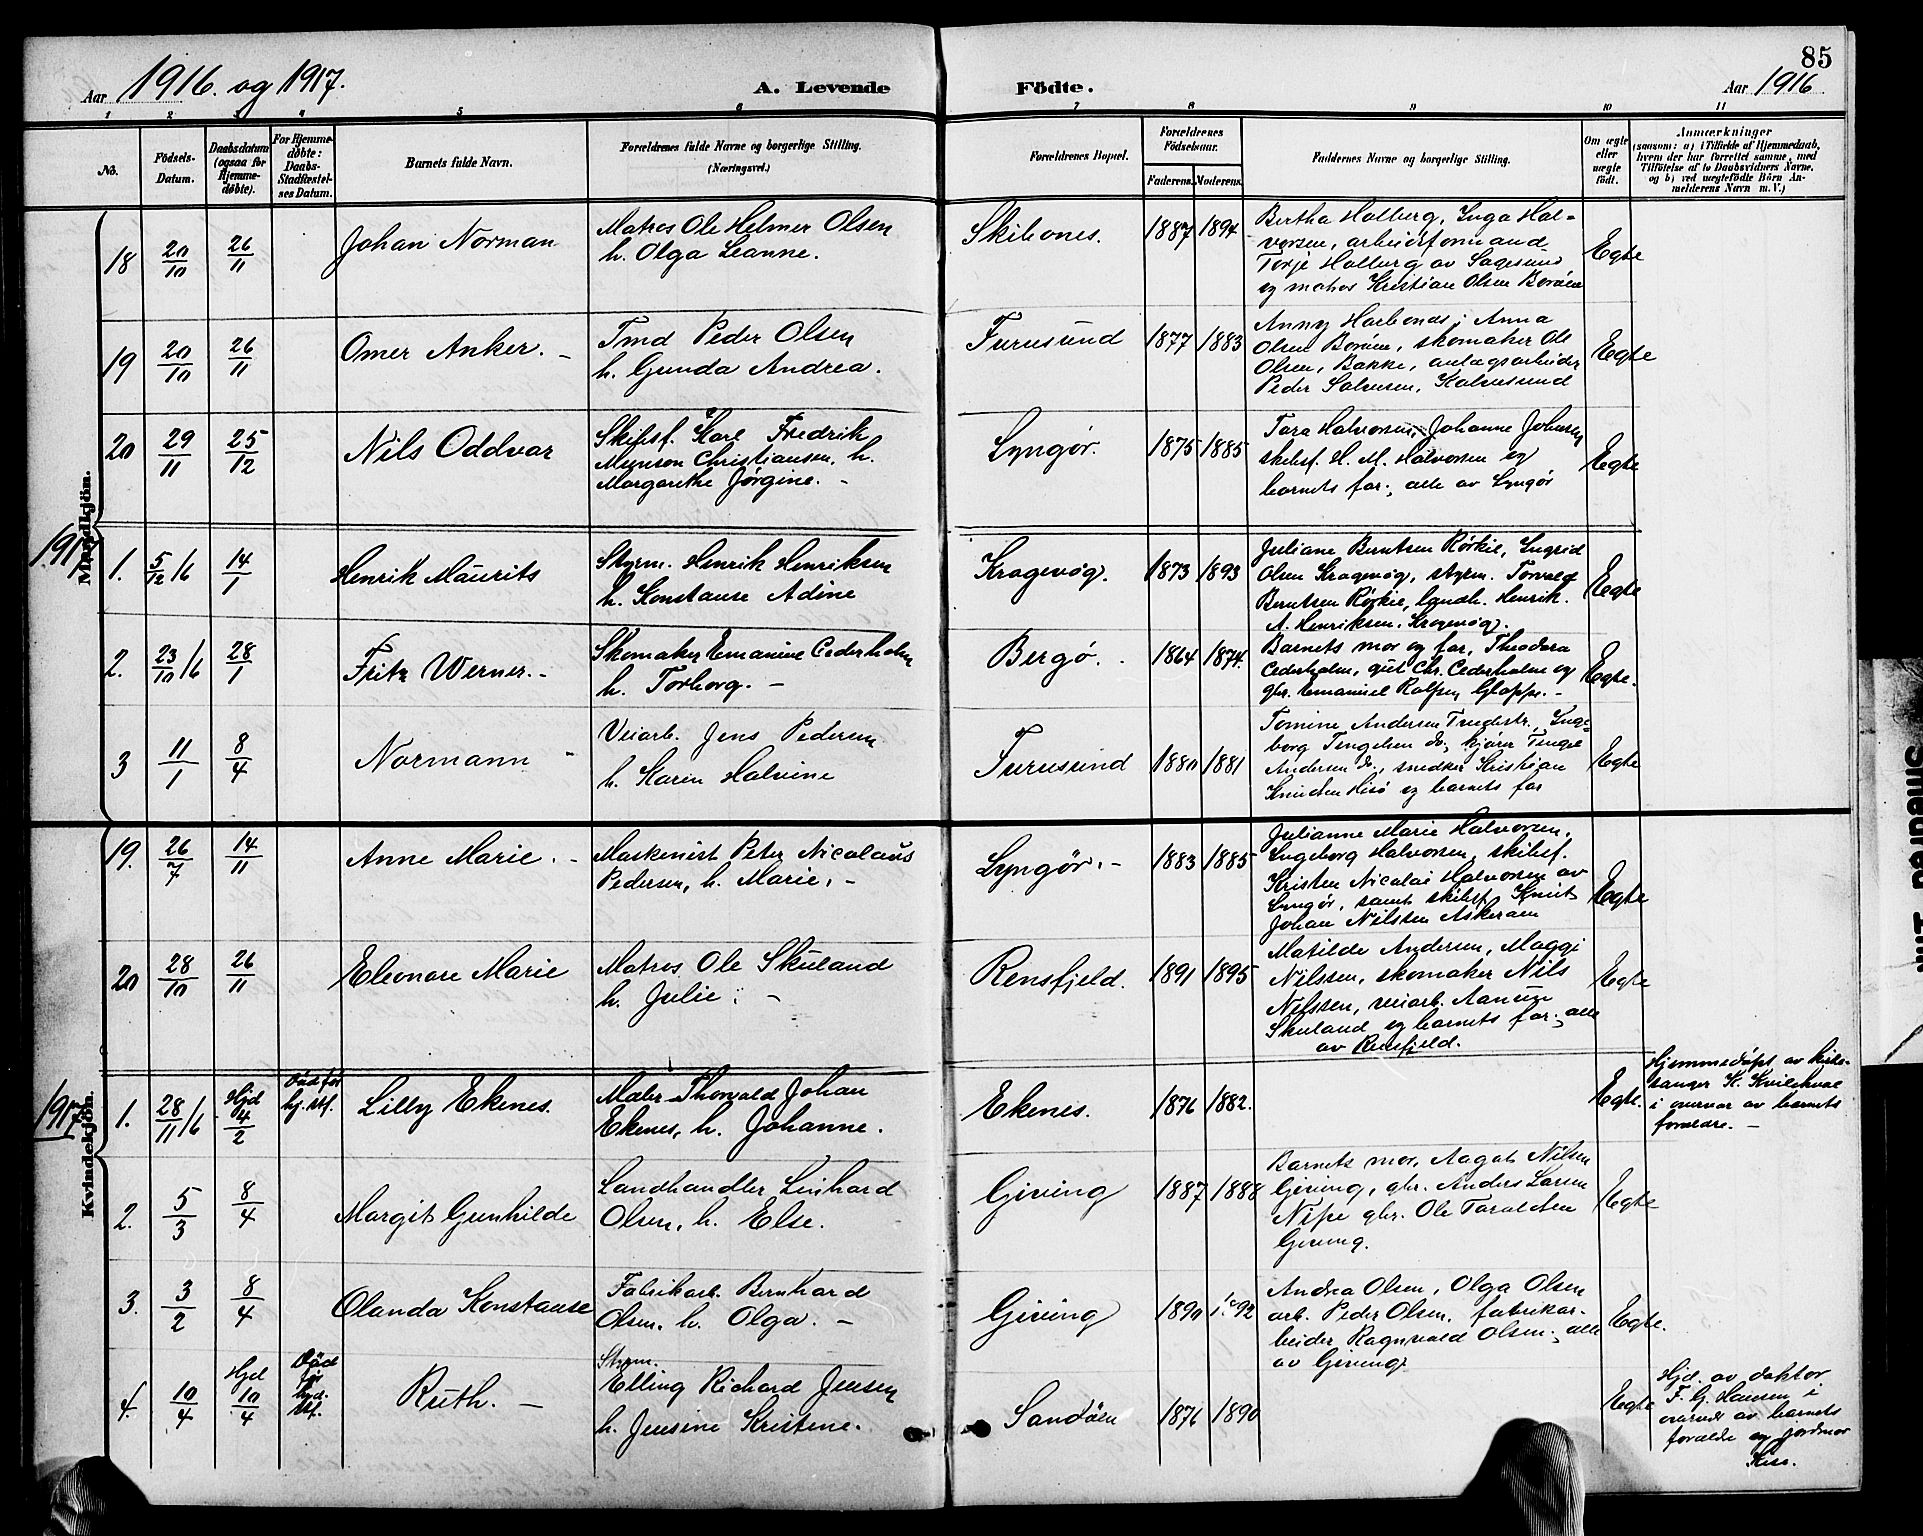 85
Aar 1916. og 1917.
A. Levende Födte.
Aar 1916
1 2 3 4 5 6 7 8 9 10 11
No.
Födsels-
Datum.
Daabsdatum
(ogsaa for
Hjemme-
døbte).
For Hjemme-
døbte:
Daabs-
Stadfæstel-
ses Datum.
Barnets fulde Navn.
Forældrenes fulde Navne og borgerlige Stilling.
(Næringsvei.)
Forældrenes Bopæl.
Forældrenes
Födselsaar.
Faderens. Moderens.
Faddernes Navne og borgerlige Stilling.
Om ægte
eller
uægte
födt.
Anmærkninger
(saasom: a) i Tilfælde af Hjemmedaab,
hvem der har forrettet samme, med
Tilföielse af to Daabsvidners Navne,
og b) ved uægtefödte Börn An-
melderens Navn m. V.)
Mandkjön.
18 20/10 26/11 Johan Norman
Matros Ole Helmer Olsen
h. Olga Leanne.
Skibones. 1887 1894
Bertha Holberg, Inga Hal-
vorsen, arbeidsformand
Torje Holberg av Sagesund
og matros Kristian Olsen Borøen
Egte
19 20/10 26/11 Omer Anker. -
Tmd Peder Olsen
h. Gunda Andrea.
Furusund 1877 1883
Anny Anna
Olsen Borøen, skomaker Ole
Olsen, Bakke, anlægsarbeider
Peder Salvesen, Kalvesund
Egte
20 29/11 25/12 Nils Oddvar
Skibsf. Karl Fredrik
Christiansen, h.
Margarethe Jørgine. -
Lyngør. 1875 1885
Tara Halvorsen, Johanne Johnsen
skibsf. H. M. Halvorsen og
barnets far, alle av Lyngør
Egte
1917
1. 5/12/6 14/1 Henrik Maurits
Styrm. Henrik Henriksen
h. Konstanse Adine
Kragevøg. 1873 1893
Juliane Berntsen Rørkil, Ingrid
Olsen Kragevøg, styrm. Torvald
Berntsen Rørkil, lgndh. Henrik
A. Henriksen, Kragevøg.
Egte
2. 23/10/6 28/1 Fritz Werner. -
Skomaker Emanuel Cederholm
h. Torborg. -
Bergø. 1864 1874.
Barnets mor og far, Theodora
Cederholm, gut Chr. Cederholm og
gbr. Emanuel Rolfsen, Gloppe. -
Egte.
3 11/1 8/4 Normann -
Veiarb. Jens Pedersen
h. Karen Halvine
Furusund 1880 1881
Tomine Andersen Inge-
borg Tengelsen do, Tengel
Andersen do., snedker Kristian
Knudsen Hisø og barnets far
Egte
Kvindekjön.
19. 26/7 14/11 Anne Marie. -
Maskinist Peter Nicolaus
Pedersen, h. Marie. -
Lyngør. - 1883 1885
Julianne Marie Halvorsen,
Ingeborg Halvorsen, skibsf.
Kristen Nicolai Halvorsen av
Lyngør, samt skibsf. Knut
Johan Nilssen Askerøen
Egte
20 28/10 26/11 Eleonore Marie
Matros Ole Skuland
h. Julie. -
Rensfjeld. 1891 1895
Matilde Andersen, Maggi
Nilssen, skomaker Nils
Nilssen, veiarb. Aanun
Skuland og barnets far, alle
av Rensfjeld.
Egte
1917
1. 28/11/6 Hjd 4/2 Død før hj. stf. Lilly Ekenes.
Maler Thorvald Johan
Ekenes, h. Johanne.
Ekenes. 1876 1882.
Egte.
Hjemmedøpt av kirke-
sanger K. Kvilehval
i overvær av barnets
forældre. -
2. 5/3 8/4 Margit Gunhilde
Landhandler Linhard
Olsen, h. Else.
Giving 1887 1888
Barnets mor, Aagot Nilsen
Giving, gbr. Anders Larsen
Nipe gbr. Ole Taraldsen
Giving.
Egte
3. 3/2 8/4 Olanda Konstanse
Fabrikarb. Bernhard
Olsen, h. Olga. -
Giving 1890 1892
Andrea Olsen, Olga Olsen
arb. Peder Olsen, fabrikar-
beider Ragnvald Olsen, alle
av Giving.
Egte.
4. 10/4 Hjd 10/4 Død før hjd. stf. Ruth. -
Styrm.
Elling Richard Jensen
h. Jensine Kristene.
Sandøen 1876 1890
Egte
Hjd. av doktor
F. G. Hansen i
overvær av barnets
forælde og jordmor